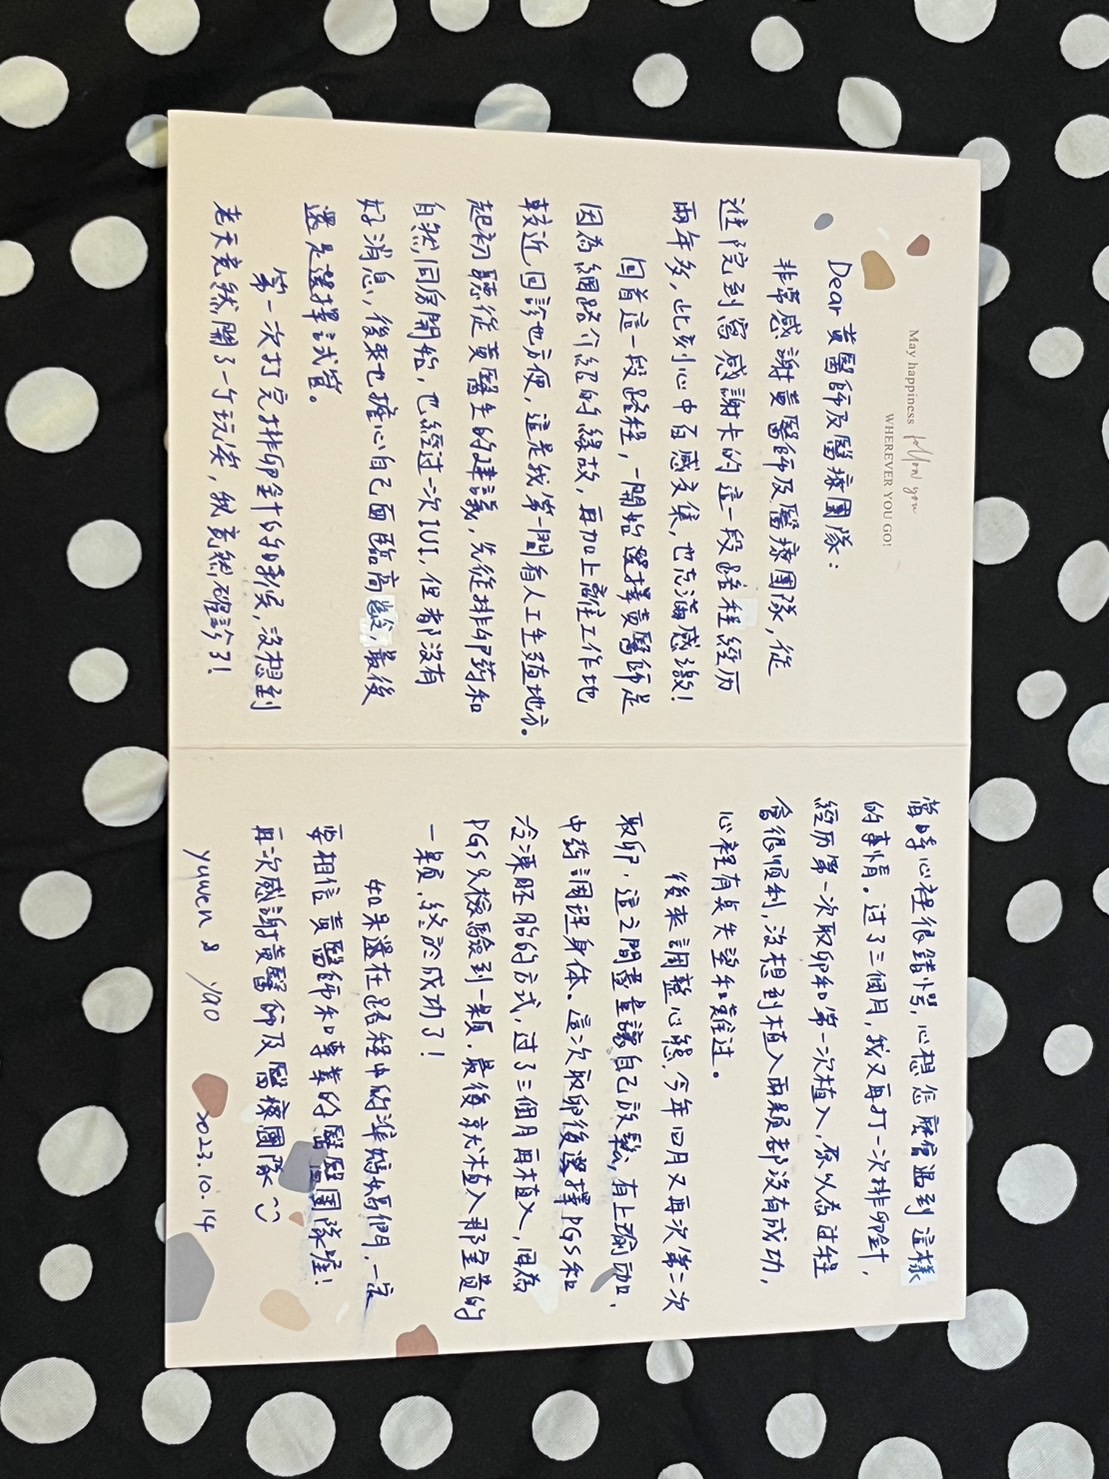 May happiness follow you
WHEREVER YOU GO!
Dear 黃醫師及醫療團隊：
非常感謝黃醫師及醫療團隊，從
進院到寫感謝卡的這一段路程經历
兩年多，此刻心中百感交集，也充滿感激！
回首這一段路程，一開始選擇黃醫師是
因為網路介紹的緣故，再加上離工作地
較近回診也方便，這是我第一間看人工生殖地方。
起初聽從黃醫生的建議，先從排卵药和
自然同房開始，也經过一次IUI，但都沒有
好消息，後來也擔心自己面臨高齡，最後
還是選擇試管。
第一次打完排卵針的時候，沒想到
老天竟然開了一个玩笑，我竟然確診了！
當時心裡很錯愕，心想怎麼會遇到這樣
的事情。过了三個月，我又再打一次排卵針，
經历第一次取卵和第一次植入，原以為过程
會很順利，沒想到植入兩顆都沒有成功，
心裡有臭失望和難过。
後來調整心態，今年四月又再次第二次
取卵，這之間盡量讓自己放鬆，有上瑜珈、
中药調理身体。這次取卵後選擇PGS和
冷凍胚胎的方式，过了三個月再植入，因為
PGS只檢驗到一顆，最後就植入那宝貴的
一顆，終於成功了！
如果還在路程中的準媽媽們，一定
要相信黃醫師和專業的醫醫團隊喔！
再次感謝黃醫師及醫療團隊
yuwen & yao 2023.10.14